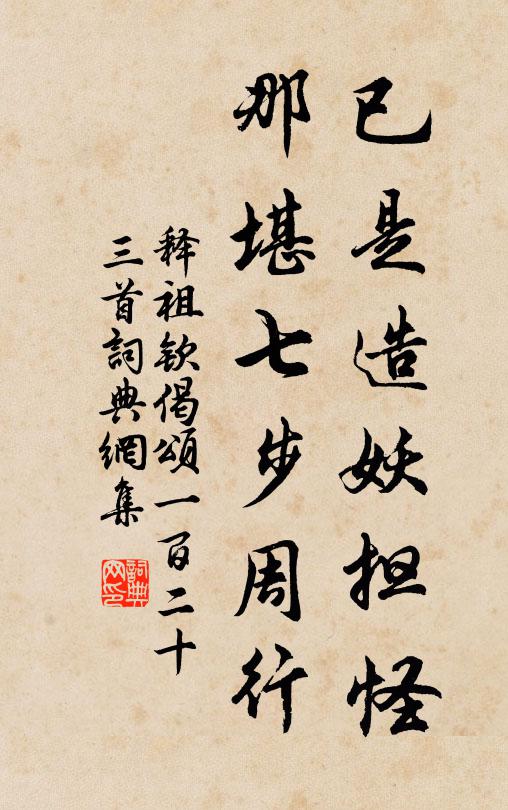 已是造妖担怪
那堪七步周行
释祖钦偈頌一百二十
三首詞典網集
詞典网印